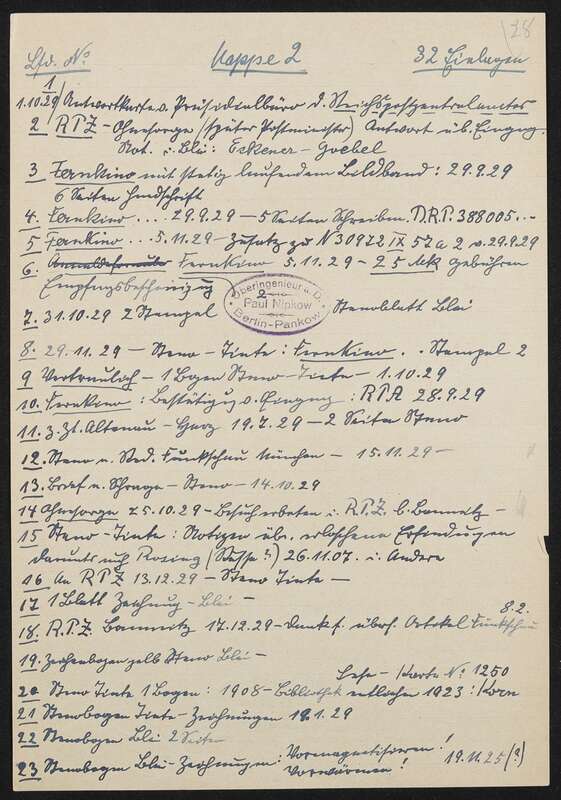 28
Lfd. No Mappe 2 32 Einlagen
1
1.10.29/ Antwortkarte v. Präsidialbüro d. Reichspostzentralamtes
2 RPZ - Ohnesorge (später Postminister) Antwort üb. Eingang.
Not. i. Blei: Eckener - Goebel
3 Fernkino mit stetig laufendem Bildband: 29.9.29
6 Seiten Handschrift
4. Fernkino . . . 29.9.29 - 5 Seiten Schreiben. D.R.P. 388005. . -
5 Fernkino . . . 5.11.29 - Zusatz zu N 30972 IX 57a 2 v. 29.9.29
6. Fernkino 5.11.29 - 25 Mk Gebühren
Empfangsbescheinigung
7. 31.10.29 2 Stempel Stenoblatt Blei
Oberingenieur a. D.
2
Paul Nipkow
Berlin-Pankow
8. 29.11.29 - Steno - Tinte: Fernkino . . Stempel 2
9 Vertraulich - 1 Bogen Steno - Tinte - 1.10.29
10. Fernkino: Bestätigung v. Eingang: RPA 28.9.29
11. z. Zt. Altenau - Harz 19.7.29 - 2 Seiten Steno
12. Steno n. Red. Funkschau München - 15.11.29 -
13. Brief n. Schrage - Steno - 14.10.29
14 Ohnesorge 25.10.29 - Besuch erbeten i. R.P.Z. b. Bannitz -
15 Steno - Tinte: Notizen üb. erloschene Erfindungen
darunter auch Rosing 26.11.07. i. Andere
16 An RPZ 13.12.29 - Steno Tinte -
17 1 Blatt Zeichnung - Blei -
8.2.
18. R.P.Z. Bannitz 17.12.29 - Dank f. übers. Artikel Funkschau
19. Zeichenbogen gelb Steno Blei -
Lese - Karte No 1250
20 Steno Tinte 1 Bogen: 1908 - Bibliothek entliehen 1923: Korn
21 Stenobogen Tinte - Zeichnungen 19.1.29
22 Stenobogen Blei 2 Seiten
23 Stenobogen Blei - Zeichnungen: Vormagnetisieren!
Vorwärmen! 19.11.25 (?)